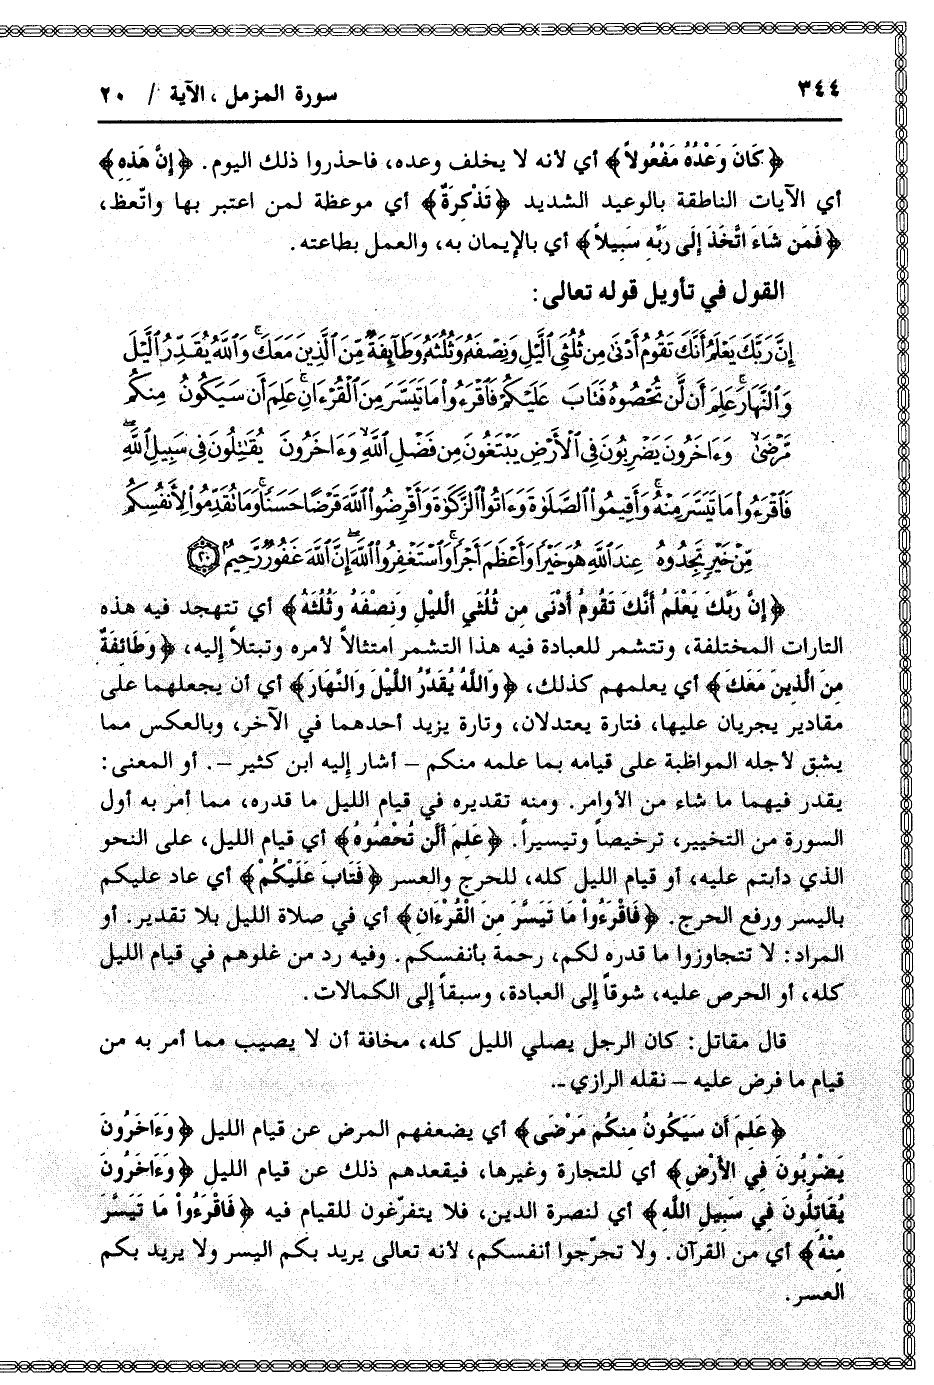 ٣٤٤
سورة المزمل ، الآية / ٢٠
﴿كَانَ وَعْدُهُ مَفْعُولاً﴾ أي لأنه لا يخلف وعده، فاحذروا ذلك اليوم. ﴿إِنَّ هَذِهِ﴾
أي الآيات الناطقة بالوعيد الشديد ﴿تَذْكِرَةٌ﴾ أي موعظة لمن اعتبر بها واتّعظ،
﴿فَمَن شَاءَ اتَّخَذَ إِلَى رَبِّهِ سَبِيلاً﴾ أي بالإيمان به، والعمل بطاعته.
القول في تأويل قوله تعالى:
إِنَّ رَبَّكَ يَعْلَمُ أَنَّكَ تَقُومُ أَدْنَىٰ مِن ثُلُثَيِ ٱلَّيْلِ وَنِصْفَهُۥ وَثُلُثَهُۥ وَطَآئِفَةٌ مِّنَ ٱلَّذِينَ مَعَكَۚ وَٱللَّهُ يُقَدِّرُ ٱلَّيْلَ
وَٱلنَّهَارَۚ عَلِمَ أَن لَّن تُحْصُوهُ فَتَابَ عَلَيْكُمْۖ فَٱقْرَءُوا۟ مَا تَيَسَّرَ مِنَ ٱلْقُرْءَانِۚ عَلِمَ أَن سَيَكُونُ مِنكُم
مَّرْضَىٰۙ وَءَاخَرُونَ يَضْرِبُونَ فِى ٱلْأَرْضِ يَبْتَغُونَ مِن فَضْلِ ٱللَّهِۙ وَءَاخَرُونَ يُقَٰتِلُونَ فِى سَبِيلِ ٱللَّهِۖ
فَٱقْرَءُوا۟ مَا تَيَسَّرَ مِنْهُۚ وَأَقِيمُوا۟ ٱلصَّلَوٰةَ وَءَاتُوا۟ ٱلزَّكَوٰةَ وَأَقْرِضُوا۟ ٱللَّهَ قَرْضًا حَسَنًاۚ وَمَا تُقَدِّمُوا۟ لِأَنفُسِكُم
مِّنْ خَيْرٍ تَجِدُوهُ عِندَ ٱللَّهِ هُوَ خَيْرًا وَأَعْظَمَ أَجْرًاۚ وَٱسْتَغْفِرُوا۟ ٱللَّهَۖ إِنَّ ٱللَّهَ غَفُورٌ رَّحِيمٌۢ ٢٠
﴿إِنَّ رَبَّكَ يَعْلَمُ أَنَّكَ تَقُومُ أَدْنَى مِن ثُلُثَيِ الَّيْلِ وَنِصْفَهُ وَثُلُثَهُ﴾ أي تتهجد فيه هذه
التارات المختلفة، وتتشمر للعبادة فيه هذا التشمر امتثالاً لأمره وتبتلاً إليه، ﴿وَطَائِفَةٌ
مِن الَّذِينَ مَعَكَ﴾ أي يعلمهم كذلك، ﴿وَاللَّهُ يُقَدِّرُ اللَّيْلَ وَالنَّهَارَ﴾ أي أن يجعلهما على
مقادير يجريان عليها، فتارة يعتدلان، وتارة يزيد أحدهما في الآخر، وبالعكس مما
يشق لأجله المواظبة على قيامه بما علمه منكم – أشار إليه ابن كثير –. أو المعنى:
يقدر فيهما ما شاء من الأوامر. ومنه تقديره في قيام الليل ما قدره، مما أمر به أول
السورة من التخيير، ترخيصاً وتيسيراً. ﴿عَلِمَ أَلَّن تُحْصُوهُ﴾ أي قيام الليل، على النحو
الذي دأبتم عليه، أو قيام الليل كله، للحرج والعسر ﴿فَتَابَ عَلَيْكُمْ﴾ أي عاد عليكم
باليسر ورفع الحرج. ﴿فَاقْرَءُواْ مَا تَيَسَّرَ مِنَ الْقُرْءَانِ﴾ أي في صلاة الليل بلا تقدير. أو
المراد: لا تتجاوزوا ما قدره لكم، رحمة بأنفسكم. وفيه رد من غلوهم في قيام الليل
كله، أو الحرص عليه، شوقاً إلى العبادة، وسبقاً إلى الكمالات.
قال مقاتل: كان الرجل يصلي الليل كله، مخافة أن لا يصيب مما أمر به من
قيام ما فرض عليه – نقله الرازي –.
﴿عَلِمَ أَن سَيَكُونُ مِنكُم مَرْضَى﴾ أي يضعفهم المرض عن قيام الليل ﴿وَءَاخَرُونَ
يَضْرِبُونَ فِي الأَرْضِ﴾ أي للتجارة وغيرها، فيقعدهم ذلك عن قيام الليل ﴿وَءَاخَرُونَ
يُقَاتِلُونَ فِي سَبِيلِ اللَّهِ﴾ أي لنصرة الدين، فلا يتفرّغون للقيام فيه ﴿فَاقْرَءُواْ مَا تَيَسَّرَ
مِنْهُ﴾ أي من القرآن. ولا تحرّجوا أنفسكم، لأنه تعالى يريد بكم اليسر ولا يريد بكم
العسر.